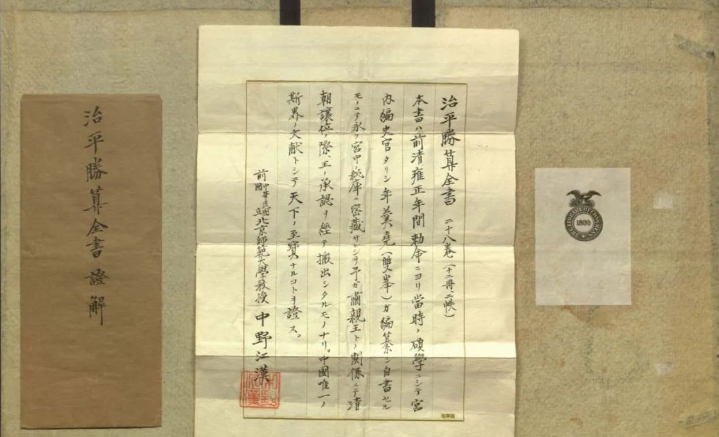 治平勝算全書 二十八巻(十二冊二帙)
本書ハ前清雍正年間勅命ニヨリ當時ノ碩學ニシテ宮
内編史官タリシ年羹堯(雙峯)ガ編纂シ自書セル
モノニテ永ク宮中秘庫ニ密藏サレシヲ予ガ肅親王トノ関係ニテ清
朝譲位ノ際、王ノ承認ヲ経テ搬出シタルモノナリ。中國唯一ノ
斯界ノ文献トシテ天下ノ至寶ナルコトヲ證ス。
前北京師範大學教授 中野江漢
治平勝算全書 證解